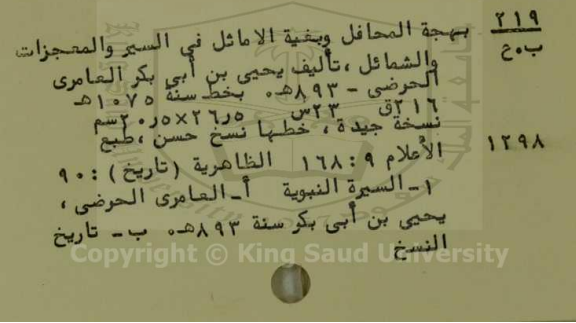 ٢١٩ بهجة المحافل وبغية الاماثل في السير والمعجزات
ب٠ح والشمائل ، تأليف يحيى بن أبي بكر العامرى
الحرضى - ٨٩٣هـ٠ بخط سنة ١٠٧٥هـ
٢١٦ق ٢٣س ٢٦٫٥×٢٠٫٥سم
١٢٩٨ نسخة جيدة ، خطها نسخ حسن ، طبع
الأعلام ٩ : ١٦٨ الظاهرية (تاريخ) : ٩٠
١- السيرة النبوية أ- العامرى الحرضي ،
يحيى بن أبى بكر سنة ٨٩٣هـ٠ ب- تاريخ
النسخ
Copyright © King Saud University